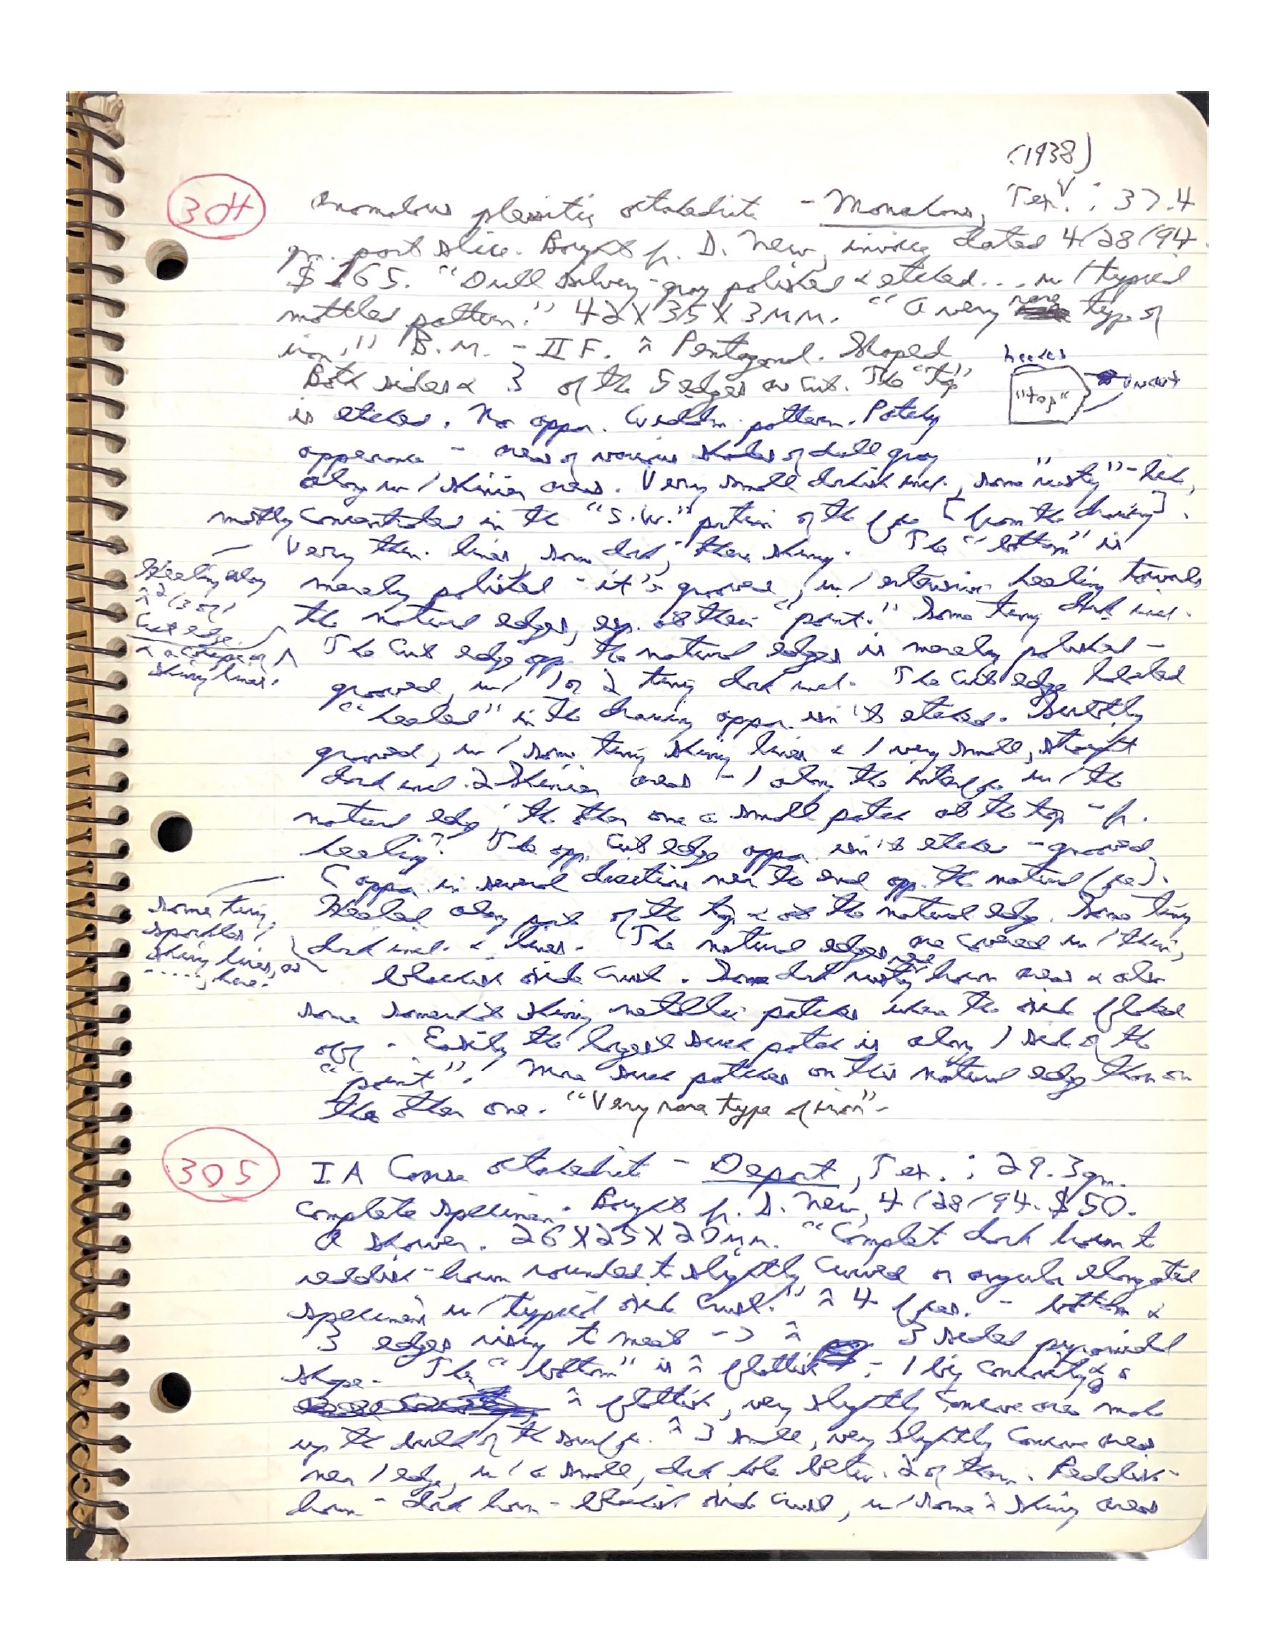 (1938)
304 Anomalous plessitic octahedrite - Monahans, Tex.: 37.4
gm. part slice. Bought fr. D. New, invoice dated 4/28/94.
$165. "Dull silvery-gray polished & etched... w/ typical
mottled pattern." 42 X 35 X 3 MM. "A very rare type of
iron." B.M. - II F. ≈ Pentagonal. Shaped
Both sides & 3 of the 5 edges are cut. The "top"
heated
"top"
uncut
is etched. No appar. Widdm. pattern. Patchy
appearance - areas of various shades of dull gray
along w/ shinier areas. Very small darkish incl., some "rusty"-like,
mostly concentrated in the "S.W." portion of the face [from the drawing].
Very thin lines, some dark, others shiny. The "bottom" is
merely polished - it's grooved, w/ extensive healing towards
the natural edges, esp. at their "point." Some tiny dark incl.
Healing along
≈ 2/3 of 1
cut edge.
& a couple of
shiny lines.
The cut edge opp. the natural edges is merely polished -
grooved, w/ 1 or 2 tiny dark incl. The cut edge labeled
"healed" in the drawing appar. isn't etched.
grooved, w/ some tiny shiny lines & 1 very small, straight
dark incl. 2 shinier areas - 1 along the interface w/ the
natural edge, the other one a small patch at the top - fr.
healing? The opp. cut edge appar. isn't etched - grooved
[appar. in several directions near the end opp. the natural face].
Healed along part of the top & at the natural edge. Some tiny
dark incl. & lines. The natural edges are covered w/ thin,
some tiny,
sparkles,
shiny lines, as
----, here.
blackish oxide crust. Some dark rusty brown areas & also
some somewhat shiny metallic patches where the oxide flaked
off - Easily the largest such patch is along 1 side of the
"point". More such patches on this natural edge than on
the other one. "Very rare type of iron".
305 I A Coarse octahedrite - Deport, Tex.: 29.3 gm.
Complete specimen. Bought fr. D. New, 4/28/94. $50.
A shower. 26 X 25 X 20 MM. "Complete dark brown to
reddish-brown rounded to slightly curved or angular elongated
specimen w/ typical oxide crust." ≈ 4 faces. - bottom &
3 edges rising to meet -> ≈ 3 sided pyramidal
shape. The "bottom" is ≈ flattish - 1 big concavity & a
≈ flattish, very slightly concave area make
up the bulk of the surface. ≈ 3 small, very slightly concave areas
near 1 edge, w/ a small, dark hole betw. 2 of them. Reddish-
brown - dark brown - blackish oxide crust, w/ some ≈ shiny areas